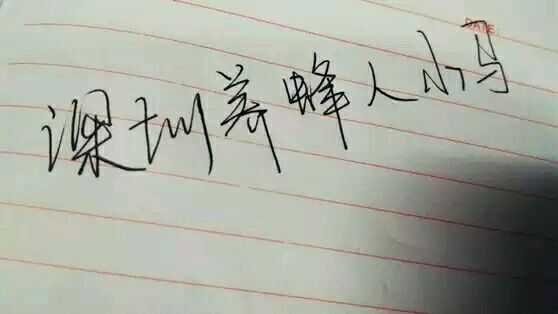 DATE:
深圳养蜂人小冯